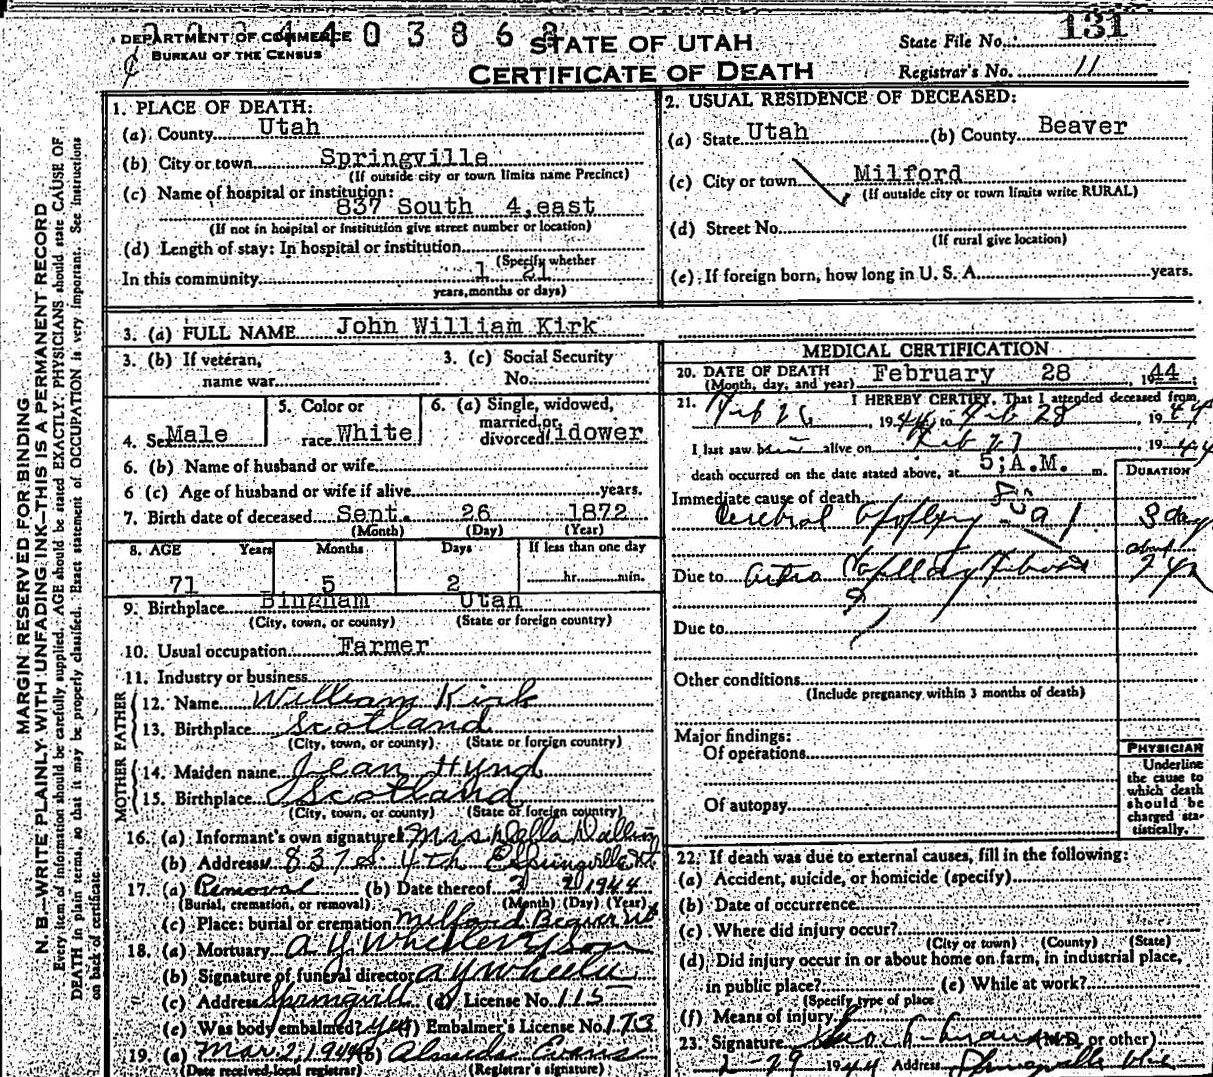 DEPARTMENT OF COMMERCE
BUREAU OF THE CENSUS
STATE OF UTAH
CERTIFICATE OF DEATH
State File No. 131
Registrar's No. 11
MARGIN RESERVED FOR BINDING
N. B.—WRITE PLAINLY WITH UNFADING INK—THIS IS A PERMANENT RECORD
Every item of information should be carefully supplied. AGE should be stated EXACTLY. PHYSICIANS should state CAUSE OF
DEATH in plain terms, so that it may be properly classified. Exact statement of OCCUPATION is very important. See instructions
on back of certificate.
1. PLACE OF DEATH:
(a) County Utah
(b) City or town Springville
(If outside city or town limits name Precinct)
(c) Name of hospital or institution:
837 South 4,east
(If not in hospital or institution give street number or location)
(d) Length of stay: In hospital or institution
(Specify whether
In this community 1 21
years, months or days)
2. USUAL RESIDENCE OF DECEASED:
(a) State Utah (b) County Beaver
(c) City or town Milford
(If outside city or town limits write RURAL)
(d) Street No.
(If rural give location)
(e) If foreign born, how long in U. S. A. years.
3. (a) FULL NAME John William Kirk
3. (b) If veteran,
name war
3. (c) Social Security
No.
4. Sex Male
5. Color or
race White
6. (a) Single, widowed,
married, or
divorced Widower
6. (b) Name of husband or wife
6 (c) Age of husband or wife if alive years.
7. Birth date of deceased Sept. 26 1872
(Month) (Day) (Year)
8. AGE Years Months Days If less than one day
71 5 2 hr. min.
9. Birthplace Bingham Utah
(City, town, or county) (State or foreign country)
10. Usual occupation Farmer
11. Industry or business
FATHER
12. Name William Kirk
13. Birthplace Scotland
(City, town, or county) (State or foreign country)
MOTHER
14. Maiden name Jean Hynd
15. Birthplace Scotland
(City, town, or county) (State or foreign country)
16. (a) Informant's own signature Mrs Della Dallin
(b) Address 837 S. 4th E Springville Ut
17. (a) Removal (b) Date thereof 3 2 1944
(Burial, cremation, or removal) (Month) (Day) (Year)
(c) Place: burial or cremation Milford Beaver Ut
18. (a) Mortuary A Y Wheeler & Son
(b) Signature of funeral director A Y Wheeler
(c) Address Springvill (d) License No. 115
(e) Was body embalmed? Yes (f) Embalmer's License No. 173
19. (a) Mar. 2, 1944 (b) Almeda Evans
(Date received local registrar) (Registrar's signature)
MEDICAL CERTIFICATION
20. DATE OF DEATH
(Month, day, and year) February 28, 1944
21. I HEREBY CERTIFY, That I attended deceased from
Feb 26, 1944 to Feb 28, 1944
I last saw him alive on Feb 27 1944
death occurred on the date stated above, at 5;A.M. m.
DURATION
Immediate cause of death
Cerebral Apoplexy 83a 3 day
Due to about
Due to
Other conditions
(Include pregnancy within 3 months of death)
Major findings:
Of operations
Of autopsy
PHYSICIAN
Underline
the cause to
which death
should be
charged sta-
tistically.
22. If death was due to external causes, fill in the following:
(a) Accident, suicide, or homicide (specify)
(b) Date of occurrence
(c) Where did injury occur?
(City or town) (County) (State)
(d) Did injury occur in or about home on farm, in industrial place,
in public place? (e) While at work?
(Specify type of place
(f) Means of injury
23. Signature (M.D. or other)
2-29 1944 Address Springville Utah